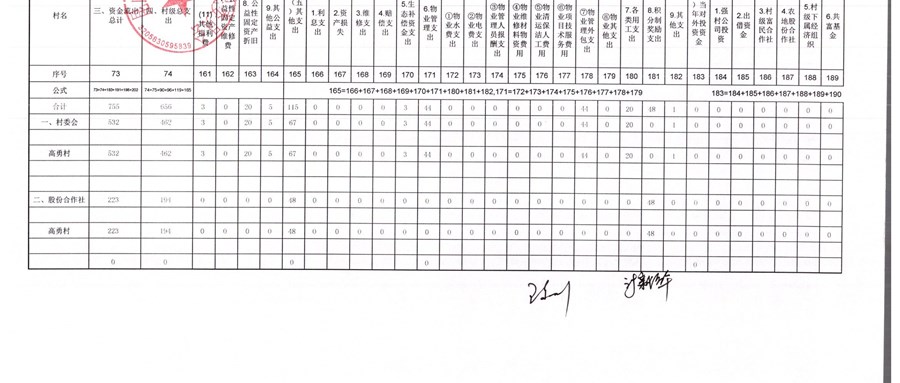 村名 三、资金流出总计 四、村级总支出 (11)其他福利费 8.公益性固定资产折旧 9.其他公益支出 (五)其他支出 1.利息支出 2.资产损失 3.维修支出 4.赔偿支出 5.生态补偿资金支出 6.物业管理支出 ①物业水费 ②物业电费 ③物业管理人员报酬支出 ④物业维修材料物资费用 ⑤物业清洁保运人工费用 ⑥物业项目技术服务费用 ⑦物业管理外包支出 ⑧物业其他支出 7.各类用工支出 8.积分制奖励支出 9.其他支出 1.强村公司投资 2.出借资金 3.村级富民合作社 4.农地股份合作社 5.村级下属经济组织 6.共富基金
序号 73 74 161 162 163 164 165 166 167 168 169 170 171 172 173 174 175 176 177 178 179 180 181 182 183 184 185 186 187 188 189
公式 165=166+167+168+169+170+171+180+181+182,171=172+173+174+175+176+177+178+179 183=184+185+186+187+188+189+190
合计 755 656 3 0 20 5 115 0 0 0 0 3 44 0 0 0 0 0 0 44 0 20 48 1 0 0 0 0 0 0 0
一、村委会 532 462 3 0 20 5 67 0 0 0 0 3 44 0 0 0 0 0 0 44 0 20 0 1 0 0 0 0 0 0 0
高勇村 532 462 3 0 20 5 67 0 0 0 0 3 44 0 0 0 0 0 0 44 0 20 0 1 0 0 0 0 0 0 0
二、股份合作社 223 194 0 0 0 0 48 0 0 0 0 0 0 0 0 0 0 0 0 0 0 0 48 0 0 0 0 0 0 0 0
高勇村 223 194 0 0 0 0 48 0 0 0 0 0 0 0 0 0 0 0 0 0 0 0 48 0 0 0 0 0 0 0 0
0 0 0 0 0